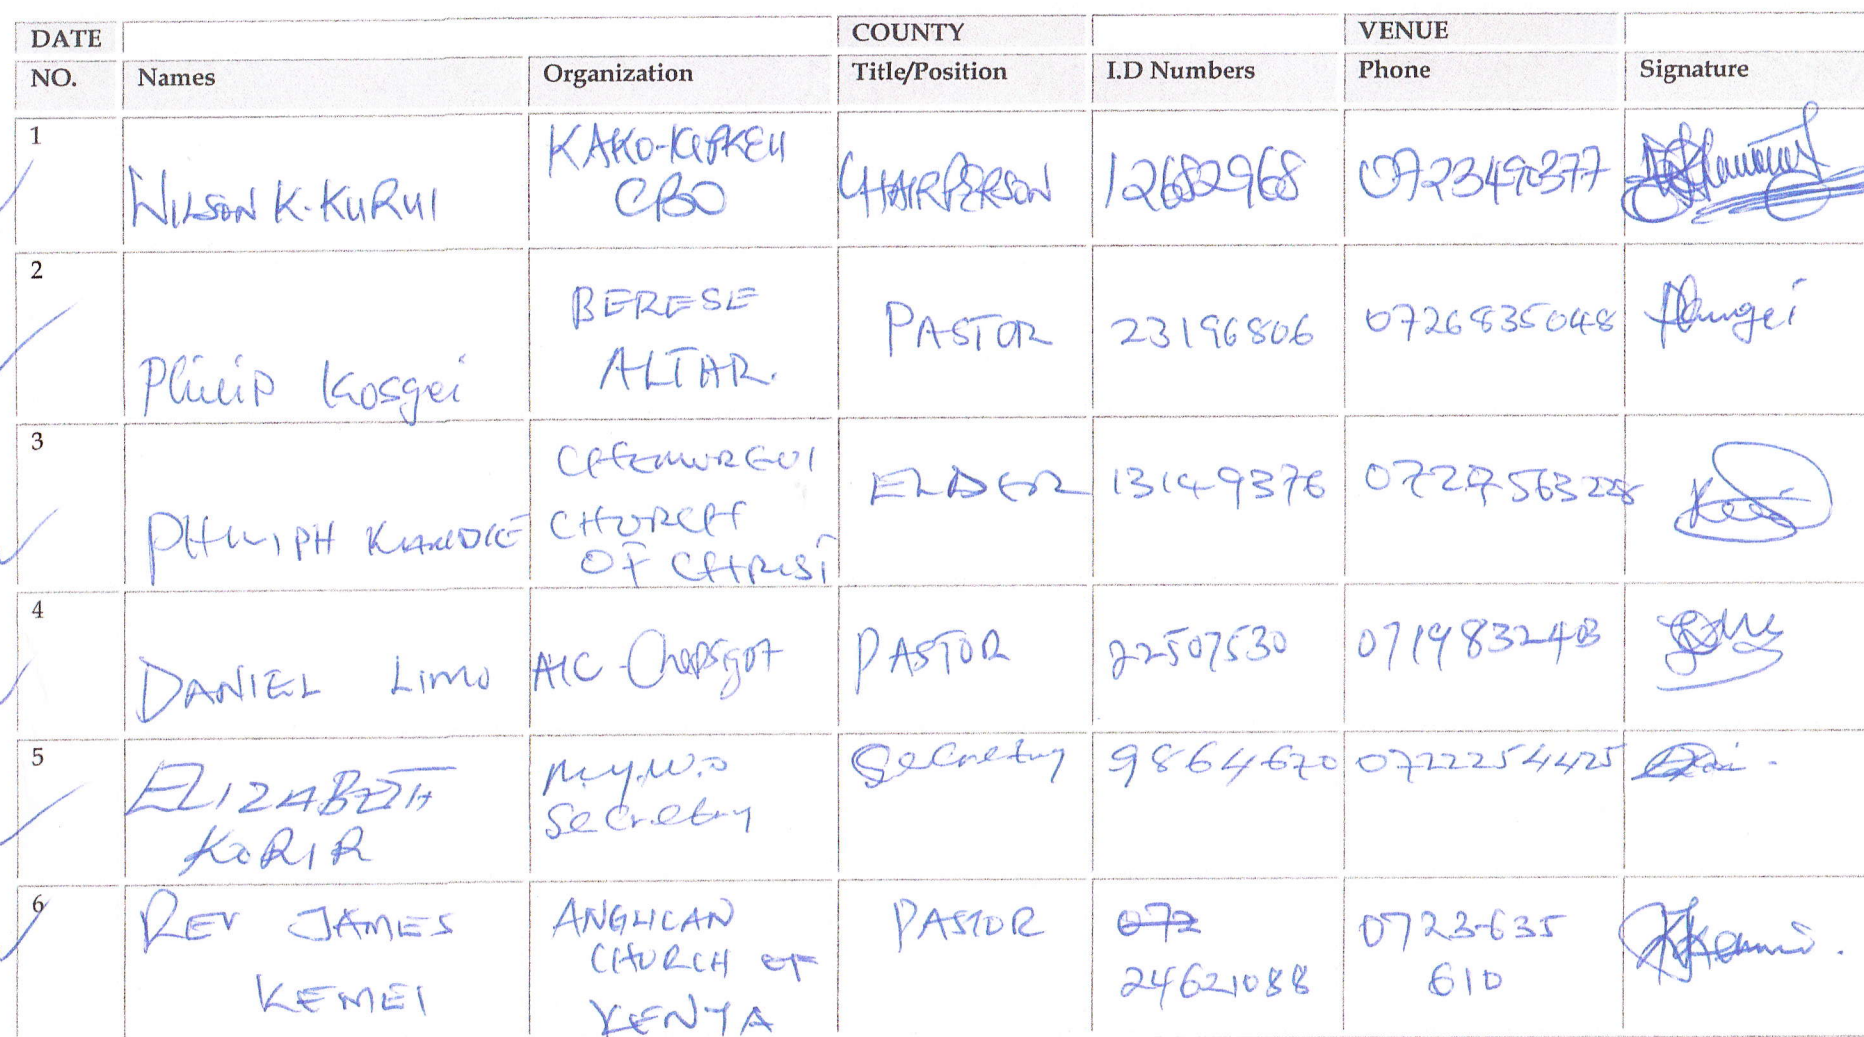 DATE COUNTY VENUE
NO. Names Organization Title/Position I.D Numbers Phone Signature
1 WILSON K. KURUI KAKO-KIPKEU CBO CHAIRPERSON 12682968 0723490377
2 Philip Kosgei BERESE ALTAR. PASTOR 23196806 0726835048
3 PHILIPH KANDIE CHEMURGUI CHURCH OF CHRIST ELDER 13149376
4 DANIEL LIMO AIC-Chepsgot PASTOR 22507530
5 ELIZABETH KORIR M.Y.W.O Secretry Secretry 9864670 0722254425
6 REV JAMES KEMEI ANGLICAN CHURCH OF KENYA PASTOR 072 24621088 0723-635 610